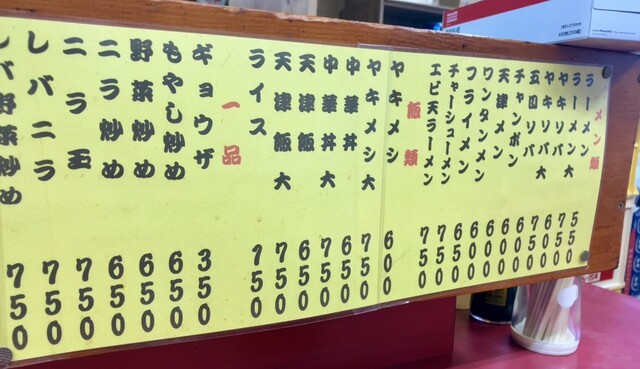 メン類
ラーメン 550
ラーメン大 750
ヤキソバ 600
ヤキソバ大 750
五目ソバ 600
チャンポン 600
天津メン 600
ワンタンメン 600
フライメン 600
チャーシューメン 750
エビ天ラーメン 750
飯類
ヤキメシ 600
ヤキメシ大 750
中華丼 650
中華丼大 750
天津飯 650
天津飯大 750
ライス 150
一品
ギョウザ 350
もやし炒め 650
野菜炒め 650
ニラ炒め 650
ニラ玉 750
レバニラ 750
レバ野菜炒め 750